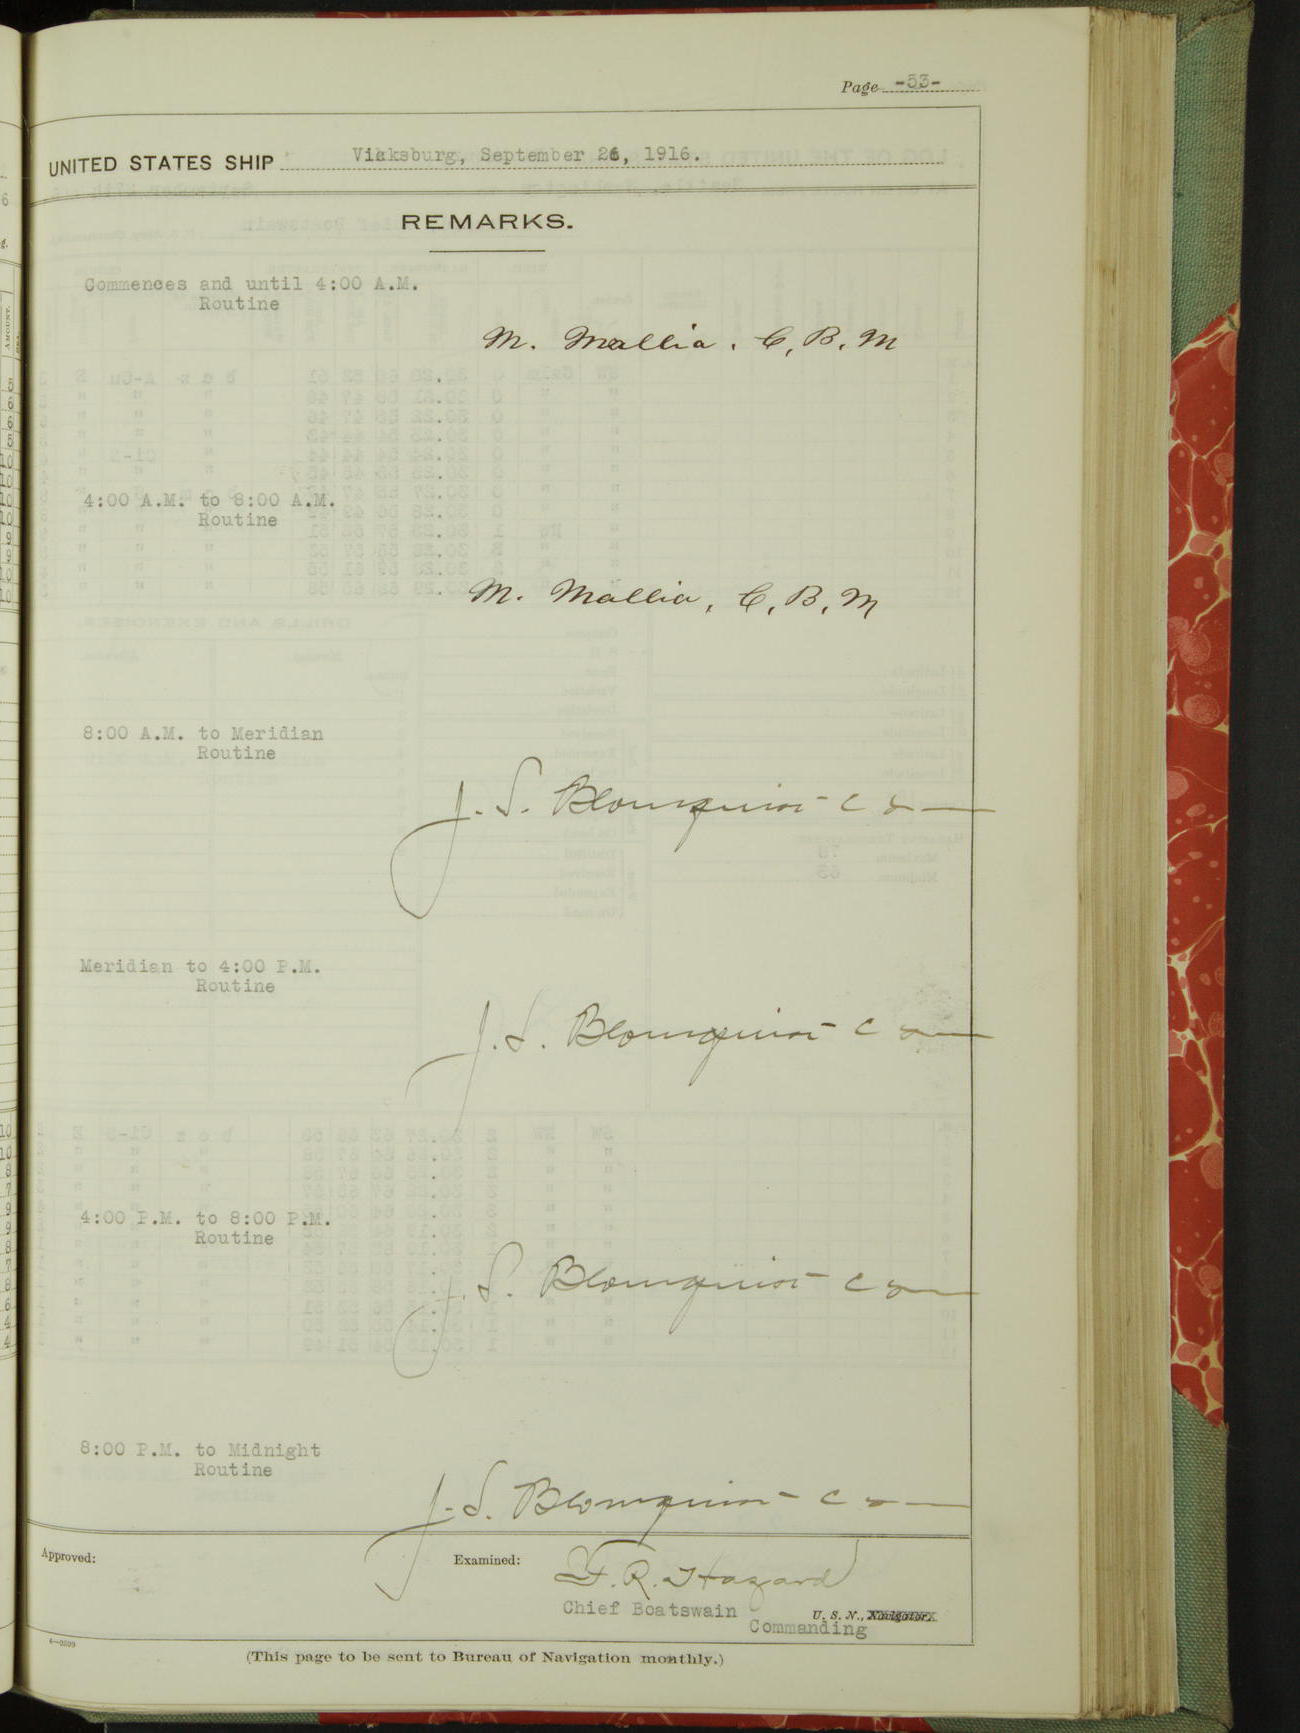 Page -53-
UNITED STATES SHIP Vicksburg, September 26, 1916.
REMARKS.
Commences and until 4:00 A.M.
Routine
M. Mallia. C, B, M
4:00 A.M. to 8:00 A.M.
Routine
M. Mallia, C, B, M
8:00 A.M. to Meridian
Routine
J. S. Blomquist
Meridian to 4:00 P.M.
Routine
J. S. Blomquist
4:00 P.M. to 8:00 P.M.
Routine
J. S. Blomquist
8:00 P.M. to Midnight
Routine
J. S. Blomquist
Approved:
Examined: F. R. Hazard
Chief Boatswain U. S. N., Navigator.
Commanding
(This page to be sent to Bureau of Navigation monthly.)